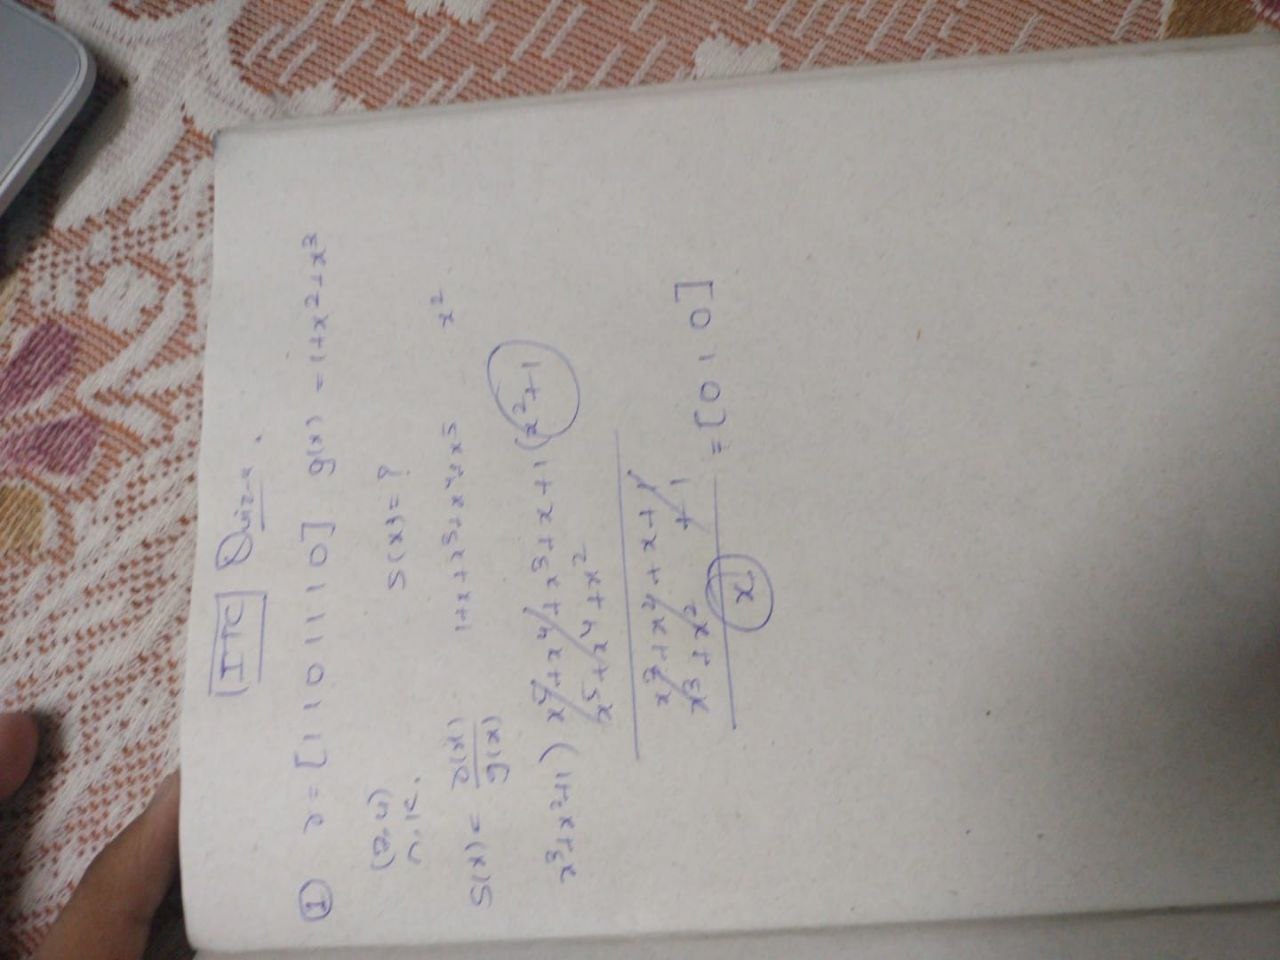 ITC Quiz-4.
① r = [1 1 0 1 1 1 0] g(x) = 1+x²+x³
(7,4) S(x) = ?
n, k.
S(x) = r(x)/g(x) 1+x+x³+x⁴+x⁵ x²
x³+x²+1) x⁵+x⁴+x³+x+1 (x²+1
x⁵+x⁴+x²
x³+x²+x+1
x³+x² +1
x = [0 1 0]